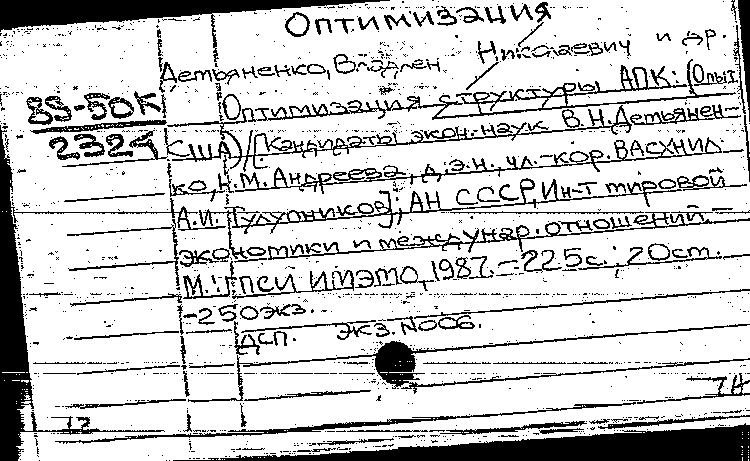 Оптимизация
Детьяненко, Владлен Николаевич и др.
89-50К Оптимизация структуры АПК: (Опыт
2324 США) / [Кандидаты экон. наук В.Н. Детьянен-
ко, Н.М. Андреева, д.э.н., чл.-кор. ВАСХНИЛ
А.И. Тулупников]; АН СССР, Ин-т мировой
экономики и междунар. отношений. —
М.: ПСИ ИМЭМО, 1987. — 225с.; 20 ст.
-250экз..
ДСП. Экз. N006.
12